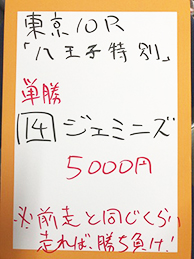 東京10R
「八王子特別」
単勝
14 ジェミニズ
5000円
※前走と同じくらい
走れば、勝ち負け!